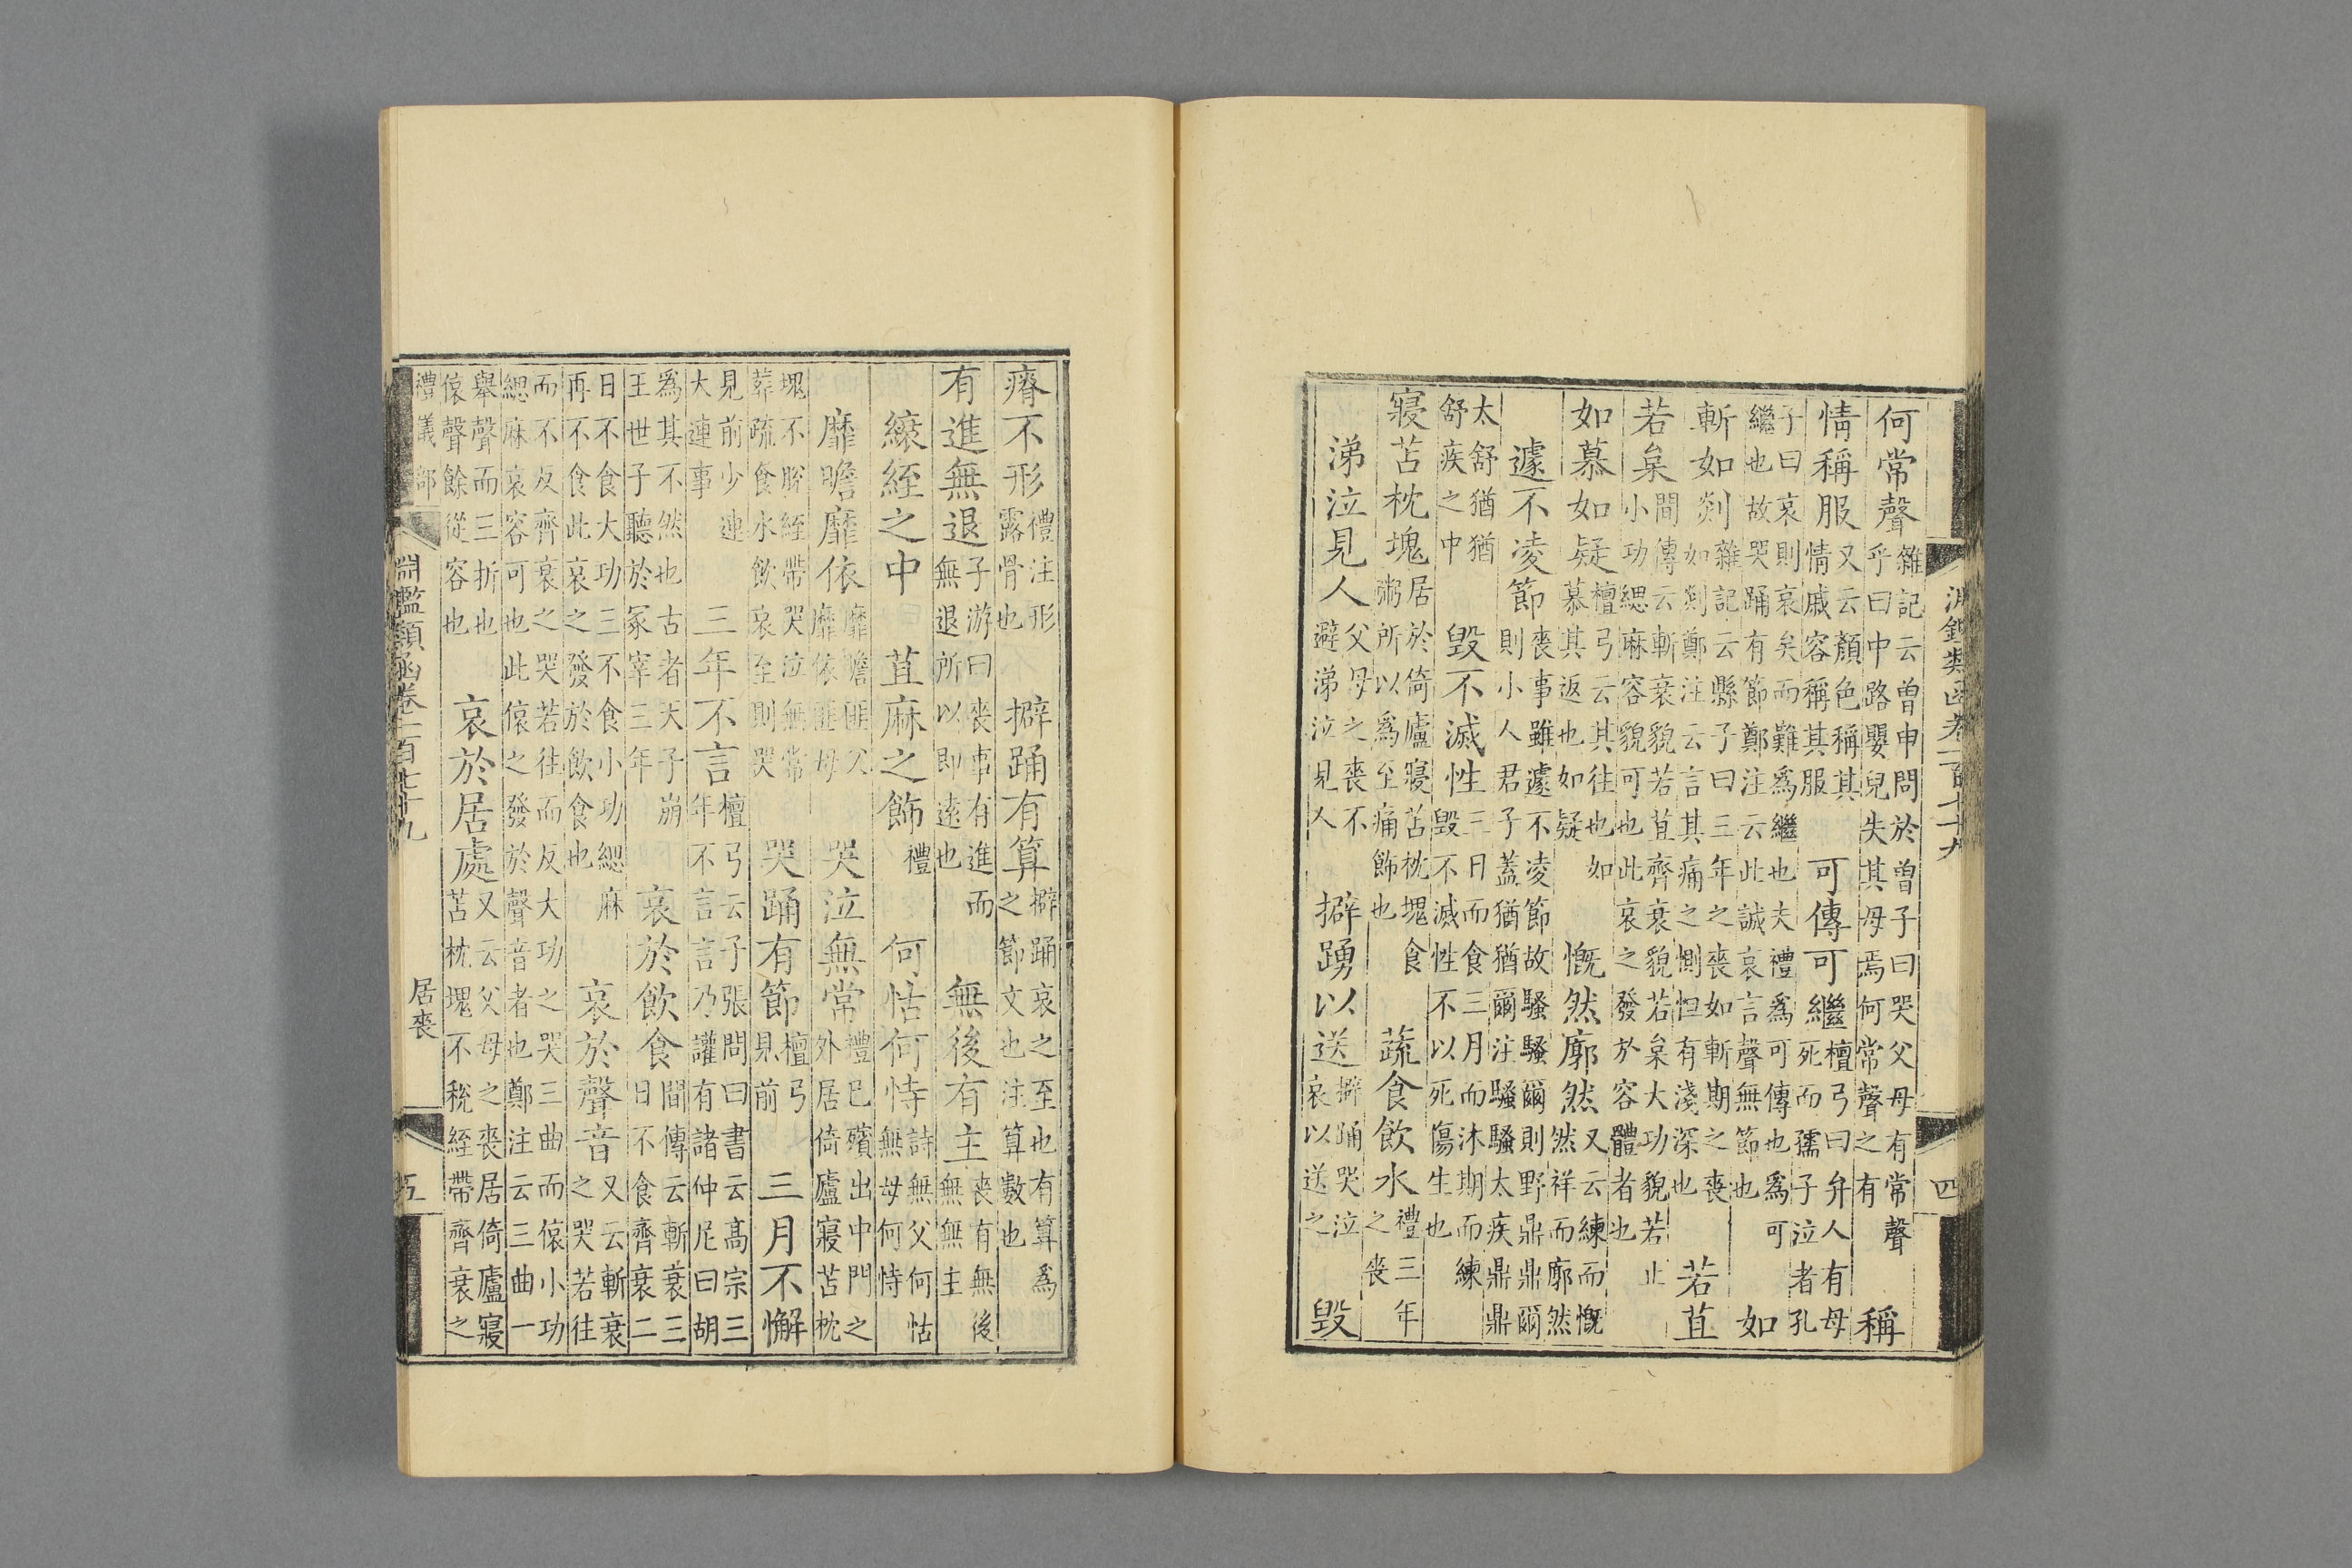 淵鑑類函卷一百七十九 四
何常聲雜記云曾申問於曾子曰哭父母有常聲乎曰中路嬰兒失其母焉何常聲之有 稱
情稱服又云顏色稱其情戚容稱其服 可傳可繼檀弓曰弁人有母死而孺子泣者孔
子曰哀則哀矣而難爲繼也夫禮爲可傳也爲可繼也故哭踊有節鄭注云此誠哀言聲無節也 如
斬如剡雜記云縣子曰三年之喪如斬期之喪如剡鄭注云言其痛之惻怛有淺深也 若苴
若枲間傳云斬衰貌若苴齊衰貌若枲大功貌若止小功緦麻容貌可也此哀之發於容體者也
如慕如疑檀弓云其往也如慕其返也如疑 慨然廓然又云練而慨然祥而廓然
遽不凌節喪事雖遽不凌節故騷騷爾則野鼎鼎爾則小人君子蓋猶猶爾注騷騷太疾鼎鼎
太舒猶猶舒疾之中 毀不滅性三日而食三月而沐期而練毀不滅性不以死傷生也
寢苫枕塊居於倚廬寢苫枕塊食粥所以爲至痛飾也 蔬食飲水禮三年之喪
涕泣見人父母之喪不避涕泣見人 擗踴以送擗踊哭泣哀以送之 毀
瘠不形禮注形露骨也 擗踊有算擗踊哀之至也有算爲之節文也注算數也
有進無退子游曰喪事有進而無退所以即遠也 無後有主喪有無後無無主
縗絰之中 苴麻之飾禮 何怙何恃詩無父何怙無母何恃
靡瞻靡依靡瞻匪父靡依匪母 哭泣無常禮已殯出中門之外居倚廬寢苫枕
塊不脫絰帶哭泣無常葬疏食水飲哀至則哭 哭踊有節檀弓見前 三月不懈
見前少連大連事 三年不言檀弓云子張問曰書云高宗三年不言言乃讙有諸仲尼曰胡
爲其不然也古者天子崩王世子聽於冢宰三年 哀於飲食間傳云斬衰三日不食齊衰二
日不食大功三不食小功緦麻再不食此哀之發於飲食也 哀於聲音又云斬衰之哭若往
而不反齊衰之哭若往而反大功之哭三曲而偯小功緦麻哀容可也此偯之發於聲音者也鄭注云三曲一
舉聲而三折也偯聲餘從容也 哀於居處又云父母之喪居倚廬寢苫枕塊不稅絰帶齊衰之
禮儀部 淵鑑類函卷一百七十九 居喪 五